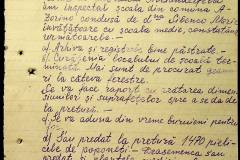 am inspectat școala din comuna A-
Dorino condusă de dna Sibenco Maria
învățătoare cu școala medie, constatând
următoarele:
a) Arhiva și registrele bine păstrate.
b) Curățenia localului de școală ter-
minată. Mai sunt de procurat geam-
ri la câteva ferestre.
Se va face raport cu arătarea dimen-
siunilor și suprafețelor spre a se da
de la pretură.
c) Se va aduna din vreme buruieni pentru
d) S'au predat la pretură 1470 pieti-
cele de popone
predat